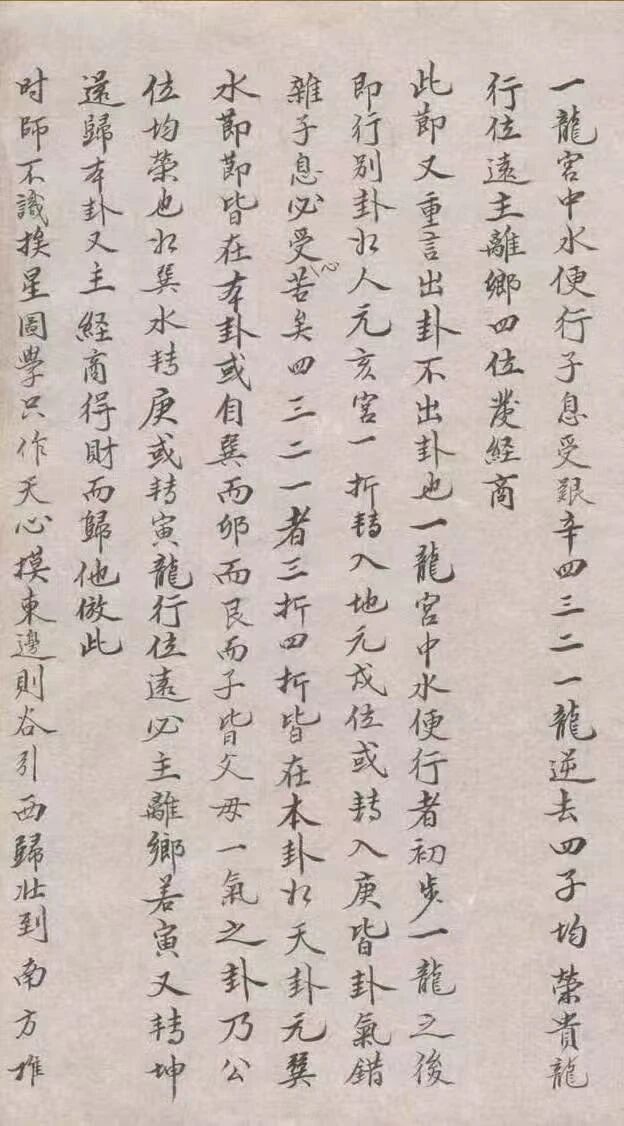 一龍宮中水便行子息受艱辛四三二一龍逆去四子均榮貴龍
行位遠主離鄉四位發經商
此節又重言出卦不出卦也一龍宮中水便行者初步一龍之後
即行別卦如人元亥宮一折轉入地元戌位或轉入庚皆卦氣錯
雜子息必受苦矣四三二一者三折四折皆在本卦如天卦元巽
水節節皆在本卦或自巽而卯而艮而子皆父母一氣之卦乃公
位均榮也如巽水轉庚或轉寅龍行位遠必主離鄉若寅又轉坤
還歸本卦又主經商得財而歸他倣此
时師不識挨星圖學只作天心摸東邊則谷引西歸北到南方推